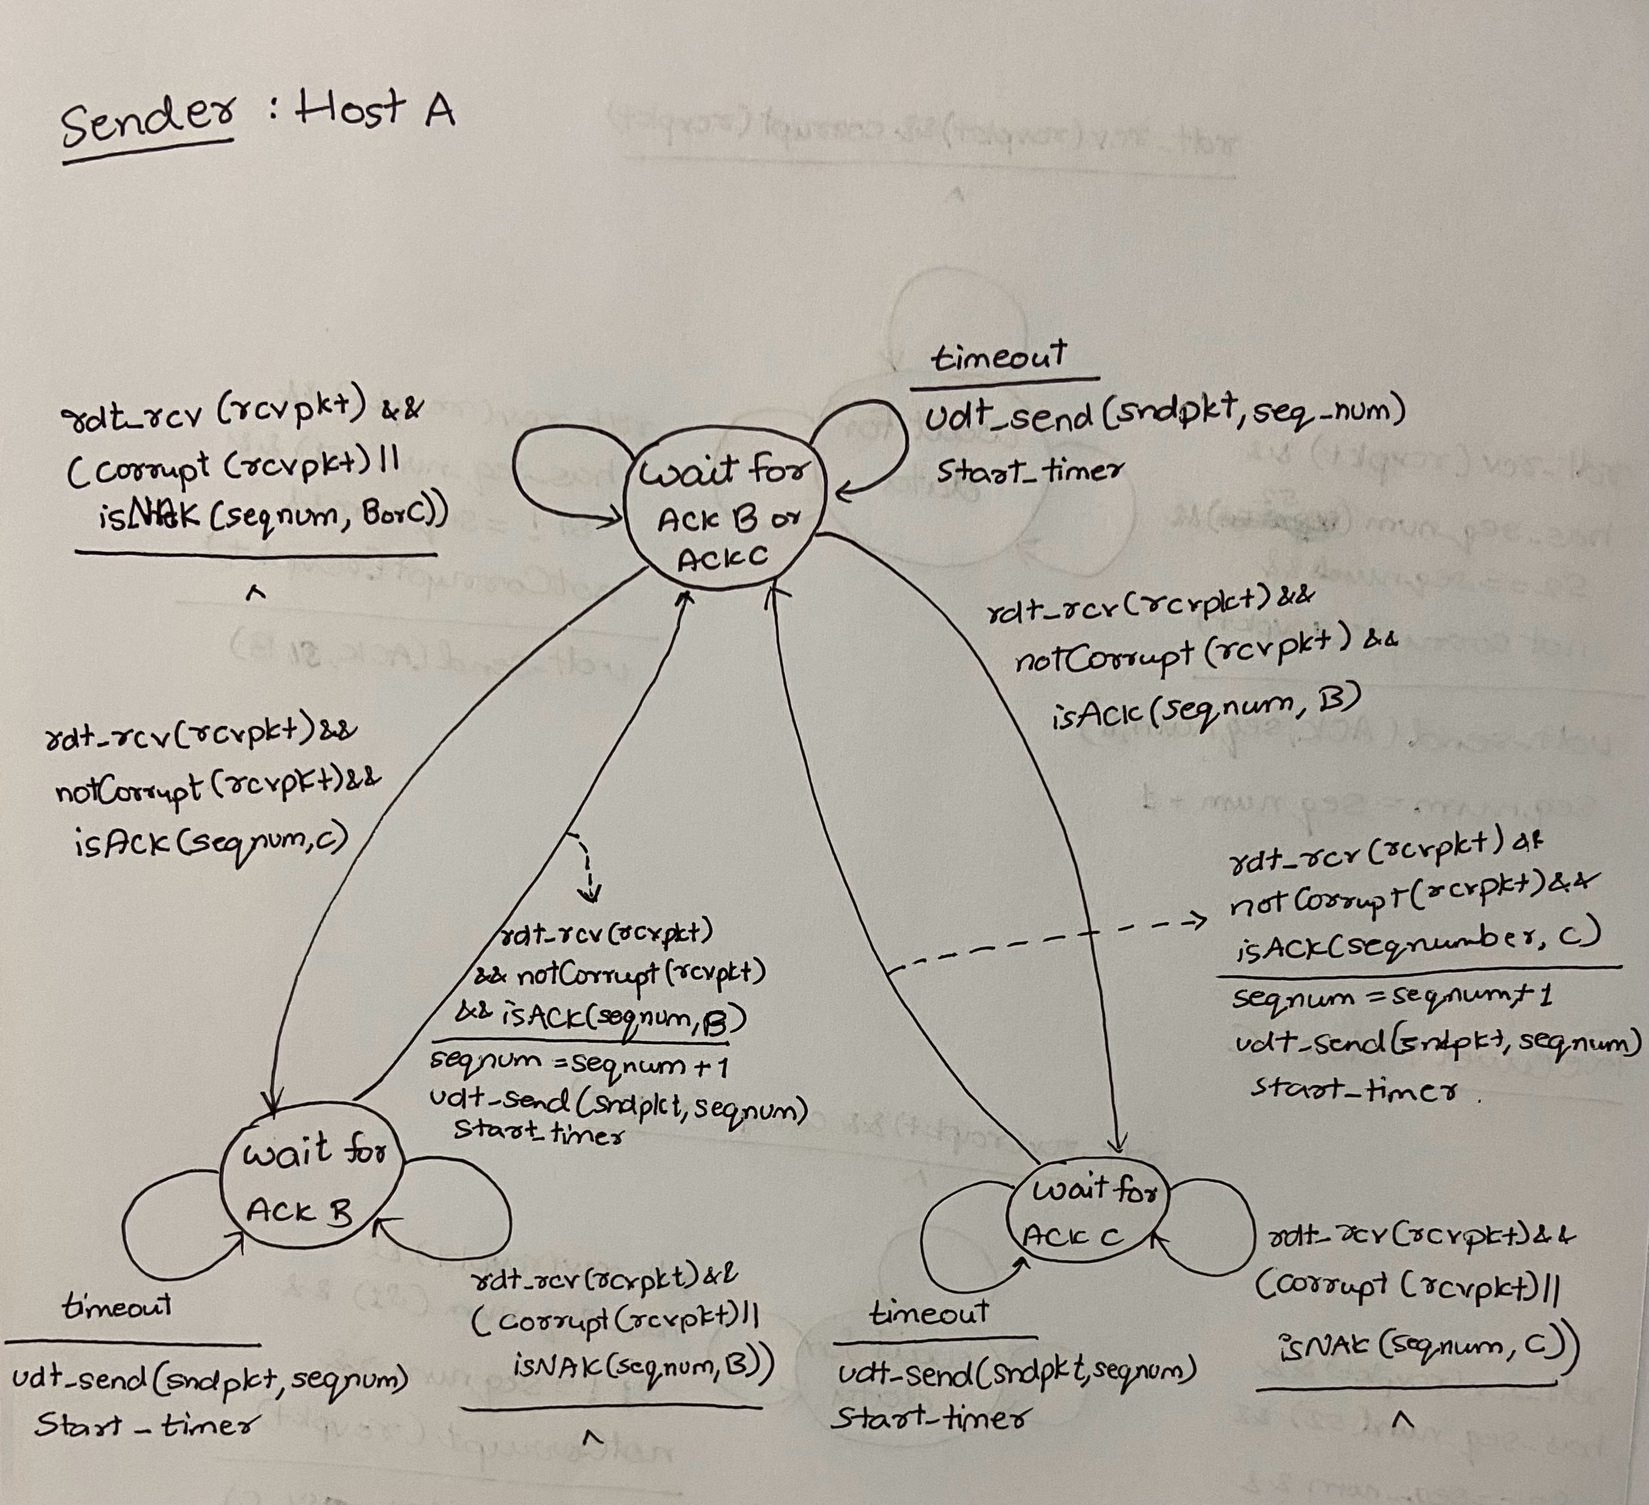 Sender : Host A
timeout
udt_send(sndpkt, seq_num)
Start_timer
rdt_rcv (rcvpkt) &&
(corrupt (rcvpkt) ||
(seqnum, BorC))
^
wait for
ACK B or
ACK C
rdt_rcv(rcvpkt) &&
notCorrupt (rcvpkt) &&
isAck (seqnum, B)
rdt_rcv(rcvpkt)&&
notCorrupt (rcvpkt)&&
isAck (seqnum,C)
rdt_rcv (rcvpkt) &&
not Corrupt (rcvpkt)&&
isACK(seqnumber, C)
seqnum = seqnum+1
udt_send(sndpkt, seqnum)
start_timer .
rdt_rcv(rcvpkt)
&& notCorrupt (rcvpkt)
&& isACK(seqnum, B)
seqnum = seqnum + 1
udt_send (sndpkt, seqnum)
Start_timer
wait for
ACK B
timeout
udt_send (sndpkt, seqnum)
Start_timer
rdt_rcv(rcvpkt)&&
( corrupt(rcvpkt)||
isNAK(seqnum, B))
^
wait for
ACK C
timeout
udt_send(sndpkt,seqnum)
start_timer
rdt_rcv(rcvpkt)&&
(corrupt (rcvpkt)||
isNAK (seqnum, C))
^